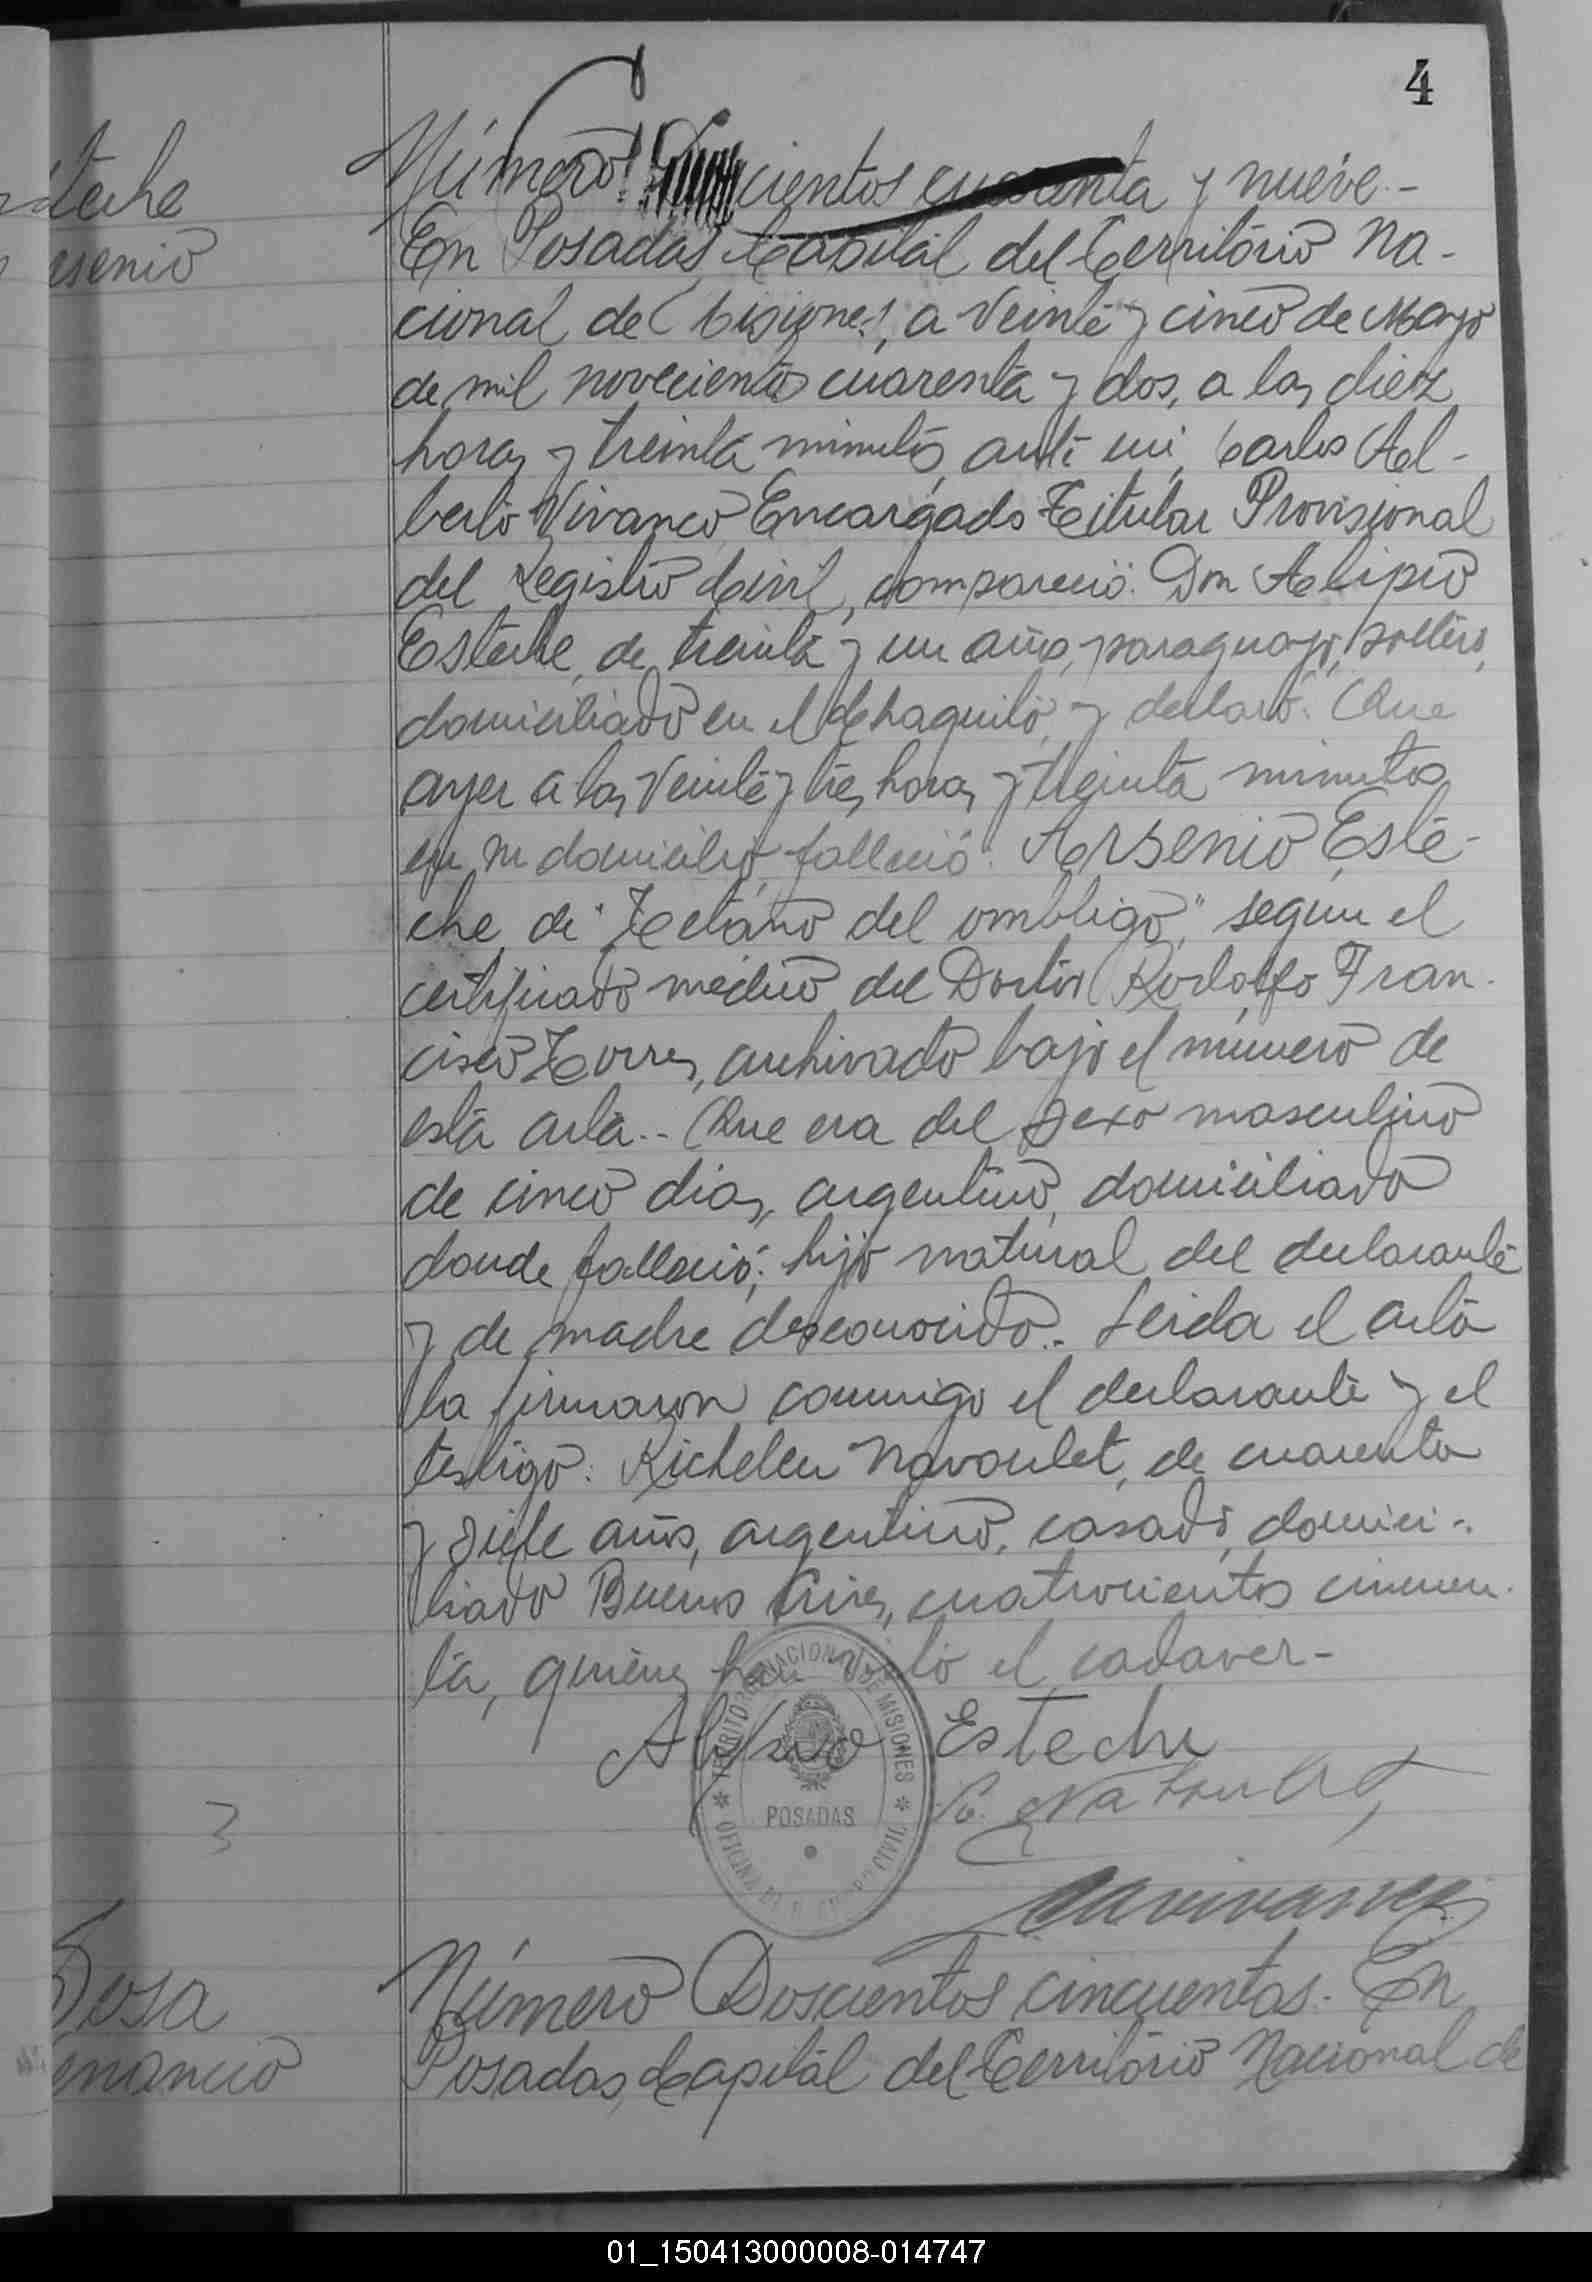 4
Número: cientos cuarenta y nueve.-
En Posadas, Capital del Territorio Na-
cional de Misiones, a veinte y cinco de Mayo
de mil novecientos cuarenta y dos, a las diez
horas y treinta minutos, ante mi, Carlos Al-
berto Vivanco Encargado Titular Provisional
del Registro Civil, compareció: Don Alipio
Esteche, de treinta y un años, paraguayo, soltero,
domiciliado en el Chaquito, y declaró: Que
ayer a las veinte y tres horas y treinta minutos
en su domicilio, falleció: Arsenio Este-
che, de "Tetano del ombligo," segun el
certificado médico del Doctor Rodolfo Fran-
cisco Torres, archivado bajo el número de
esta acta.- Que era del sexo masculino
de cinco dias, argentino, domiciliado
donde falleció; hijo natural del declarante
y de madre desconocida.- Leida el acta
la firmaron conmigo el declarante y el
testigo: Richelieu Navoulet, de cuarenta
y siete años, argentino, casado, domici-
liado Buenos Aires, cuatrocientos cincuen-
ta, quienes han visto el cadaver-
Alipio Esteche
TERRITORIO NACIONAL DE MISIONES
POSADAS
CIVIL
3
CAVivanco
Sosa
enancio
Número Doscientos cincuentas. En
Posadas, Capital del Territorio Nacional de
esteche
rsenio
01_150413000008-014747